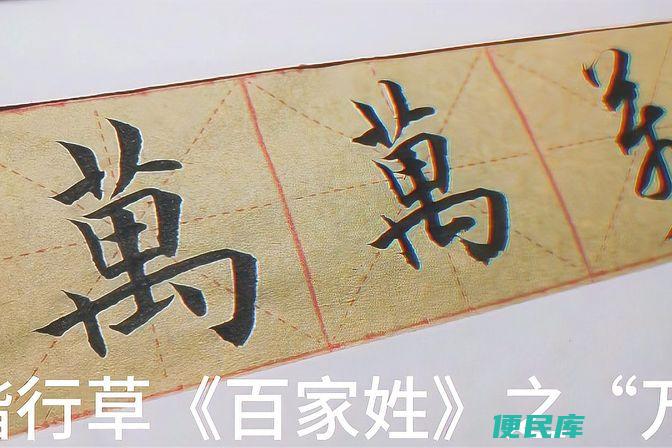 萬 萬
楷行草《百家姓》之“万
便民库